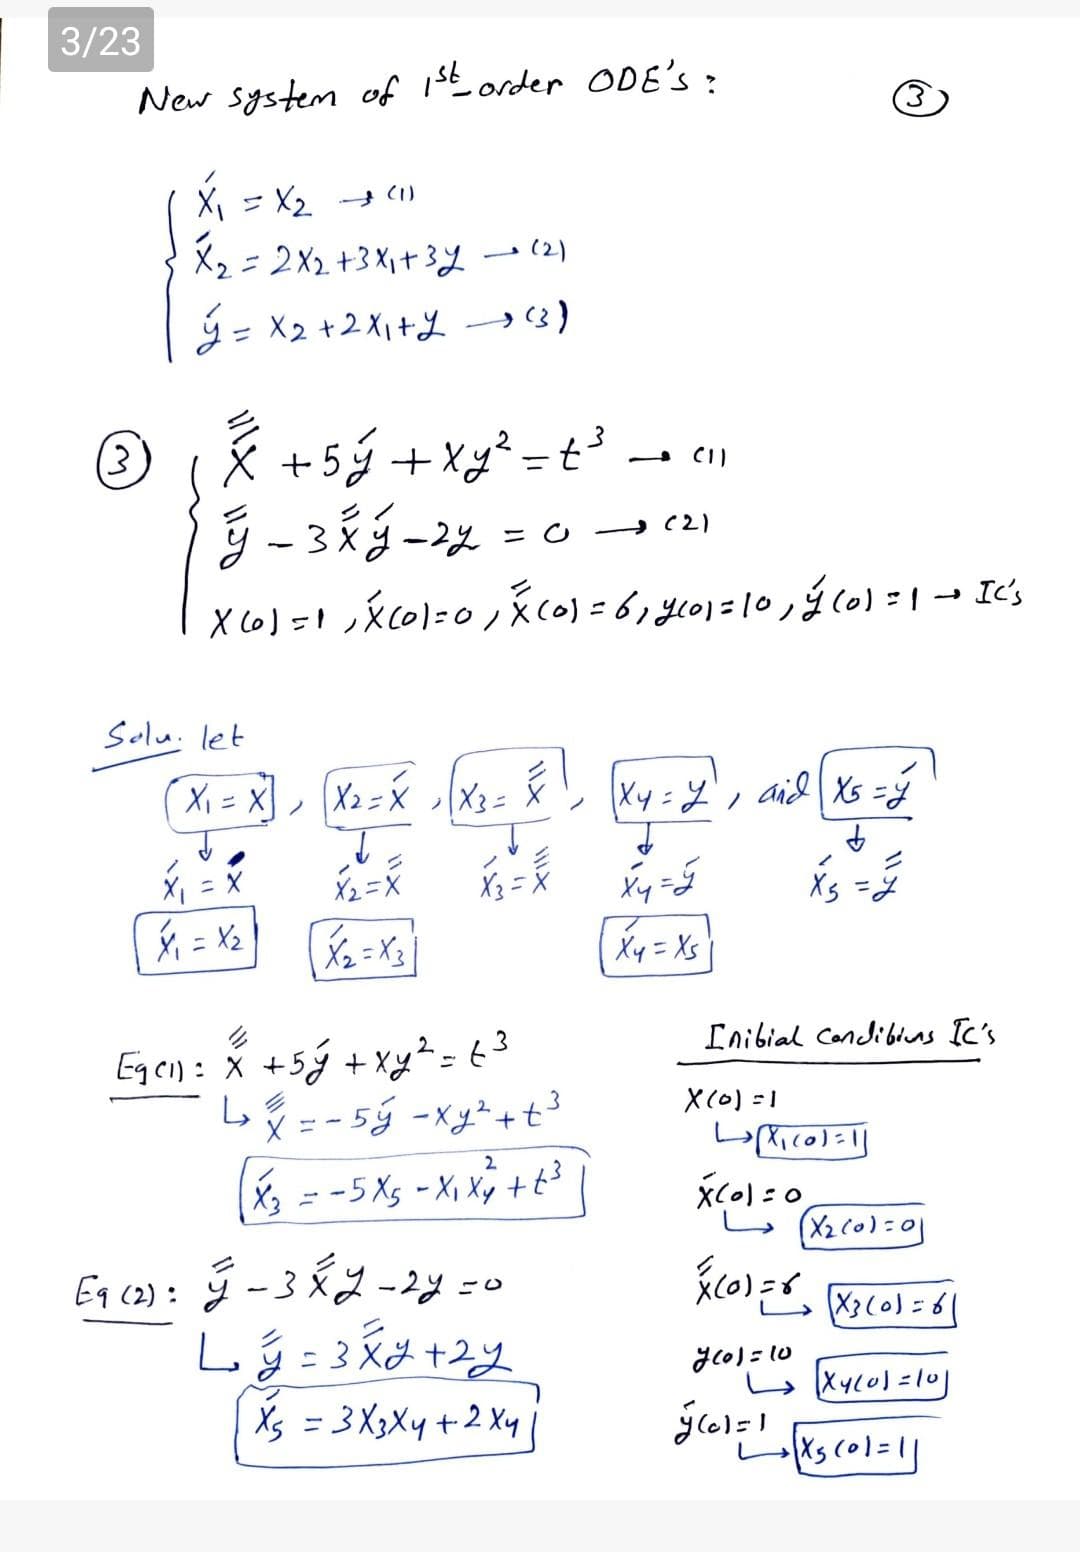 3/23
New system of 1st-order ODE's: ③
x₁′ = x₂ → (1)
x₂′ = 2x₂ + 3x₁ + 3y → (2)
y′ = x₂ + 2x₁ + y → (3)
③ x‴ + 5y′ + xy² = t³ → (1)
y″ - 3x″y′ - 2y = 0 → (2)
x(0)=1, x′(0)=0, x″(0)=6, y(0)=10, y′(0)=1 → IC's
Solu. let
x₁ = x, x₂ = x′, x₃ = x″, x₄ = y, and x₅ = y′
↓ ↓ ↓ ↓ ↓
x₁′ = x′ x₂′ = x″ x₃′ = x‴ x₄′ = y′ x₅′ = y″
x₁′ = x₂ x₂′ = x₃ x₄′ = x₅
Eq(1): x‴ + 5y′ + xy² = t³
↳ x‴ = -5y′ - xy² + t³
x₃′ = -5x₅ - x₁x₄² + t³
Eq(2): y″ - 3x″y - 2y = 0
↳ y″ = 3x″y + 2y
x₅′ = 3x₃x₄ + 2x₄
Initial Conditions IC's
x(0)=1
↳ x₁(0)=1
x′(0)=0
↳ x₂(0)=0
x″(0)=6
↳ x₃(0)=6
y(0)=10
↳ x₄(0)=10
y′(0)=1
↳ x₅(0)=1